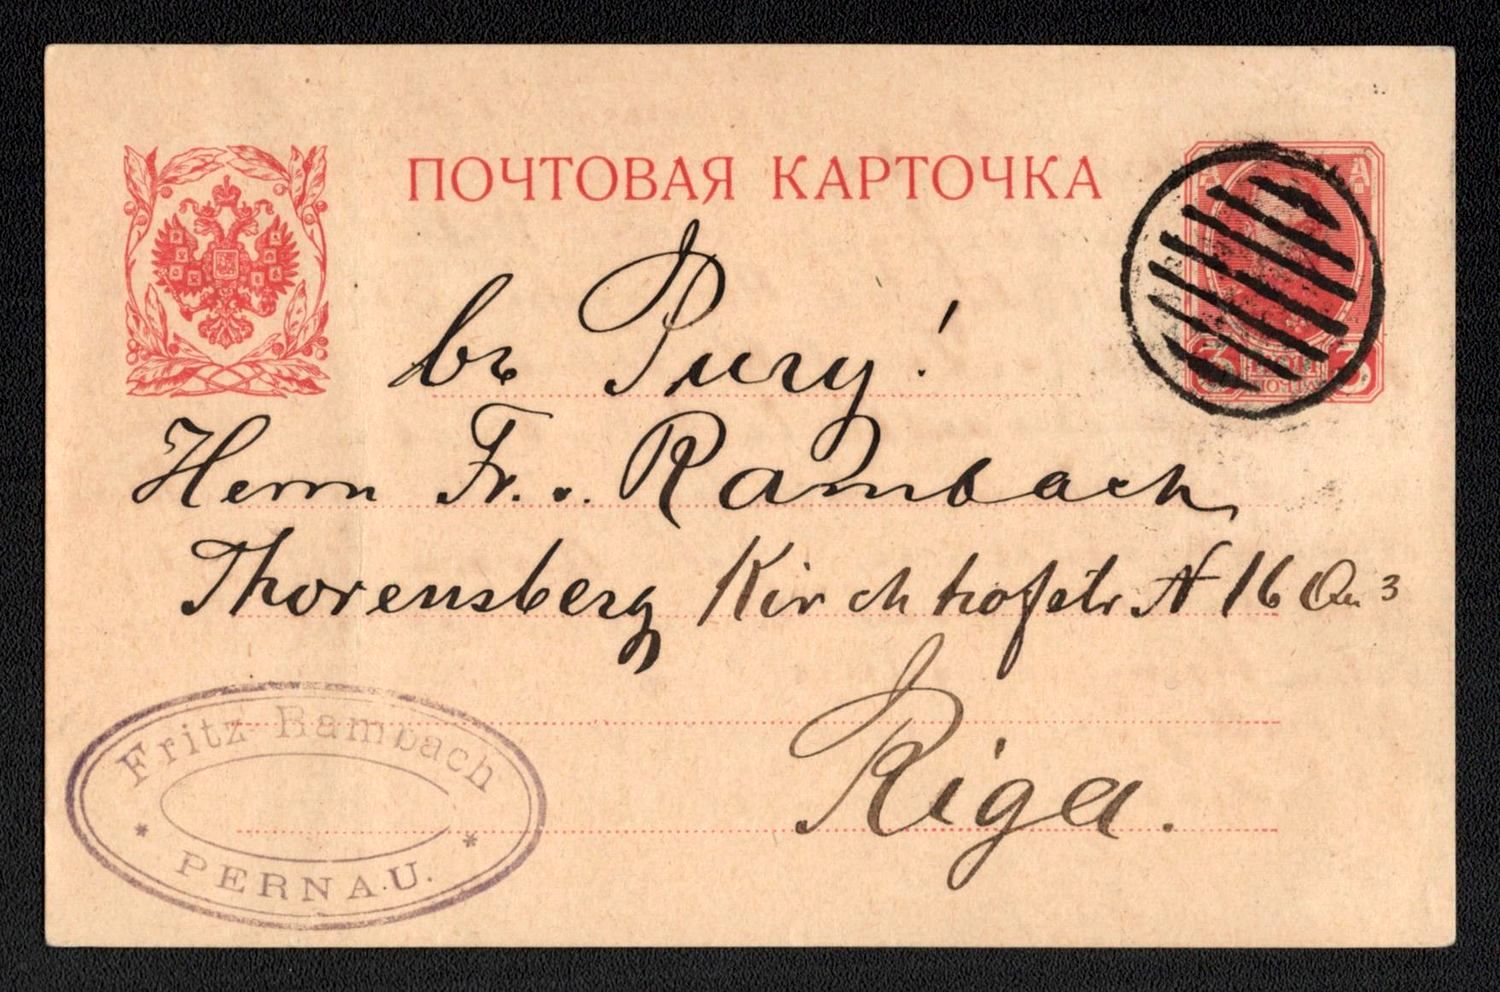 ПОЧТОВАЯ КАРТОЧКА
въ Ригу!
Herrn Fr. v. Rambach
Thorensberg Kirchhofstr. № 16 Qu. 3
Riga.
Fritz Rambach
PERNAU.